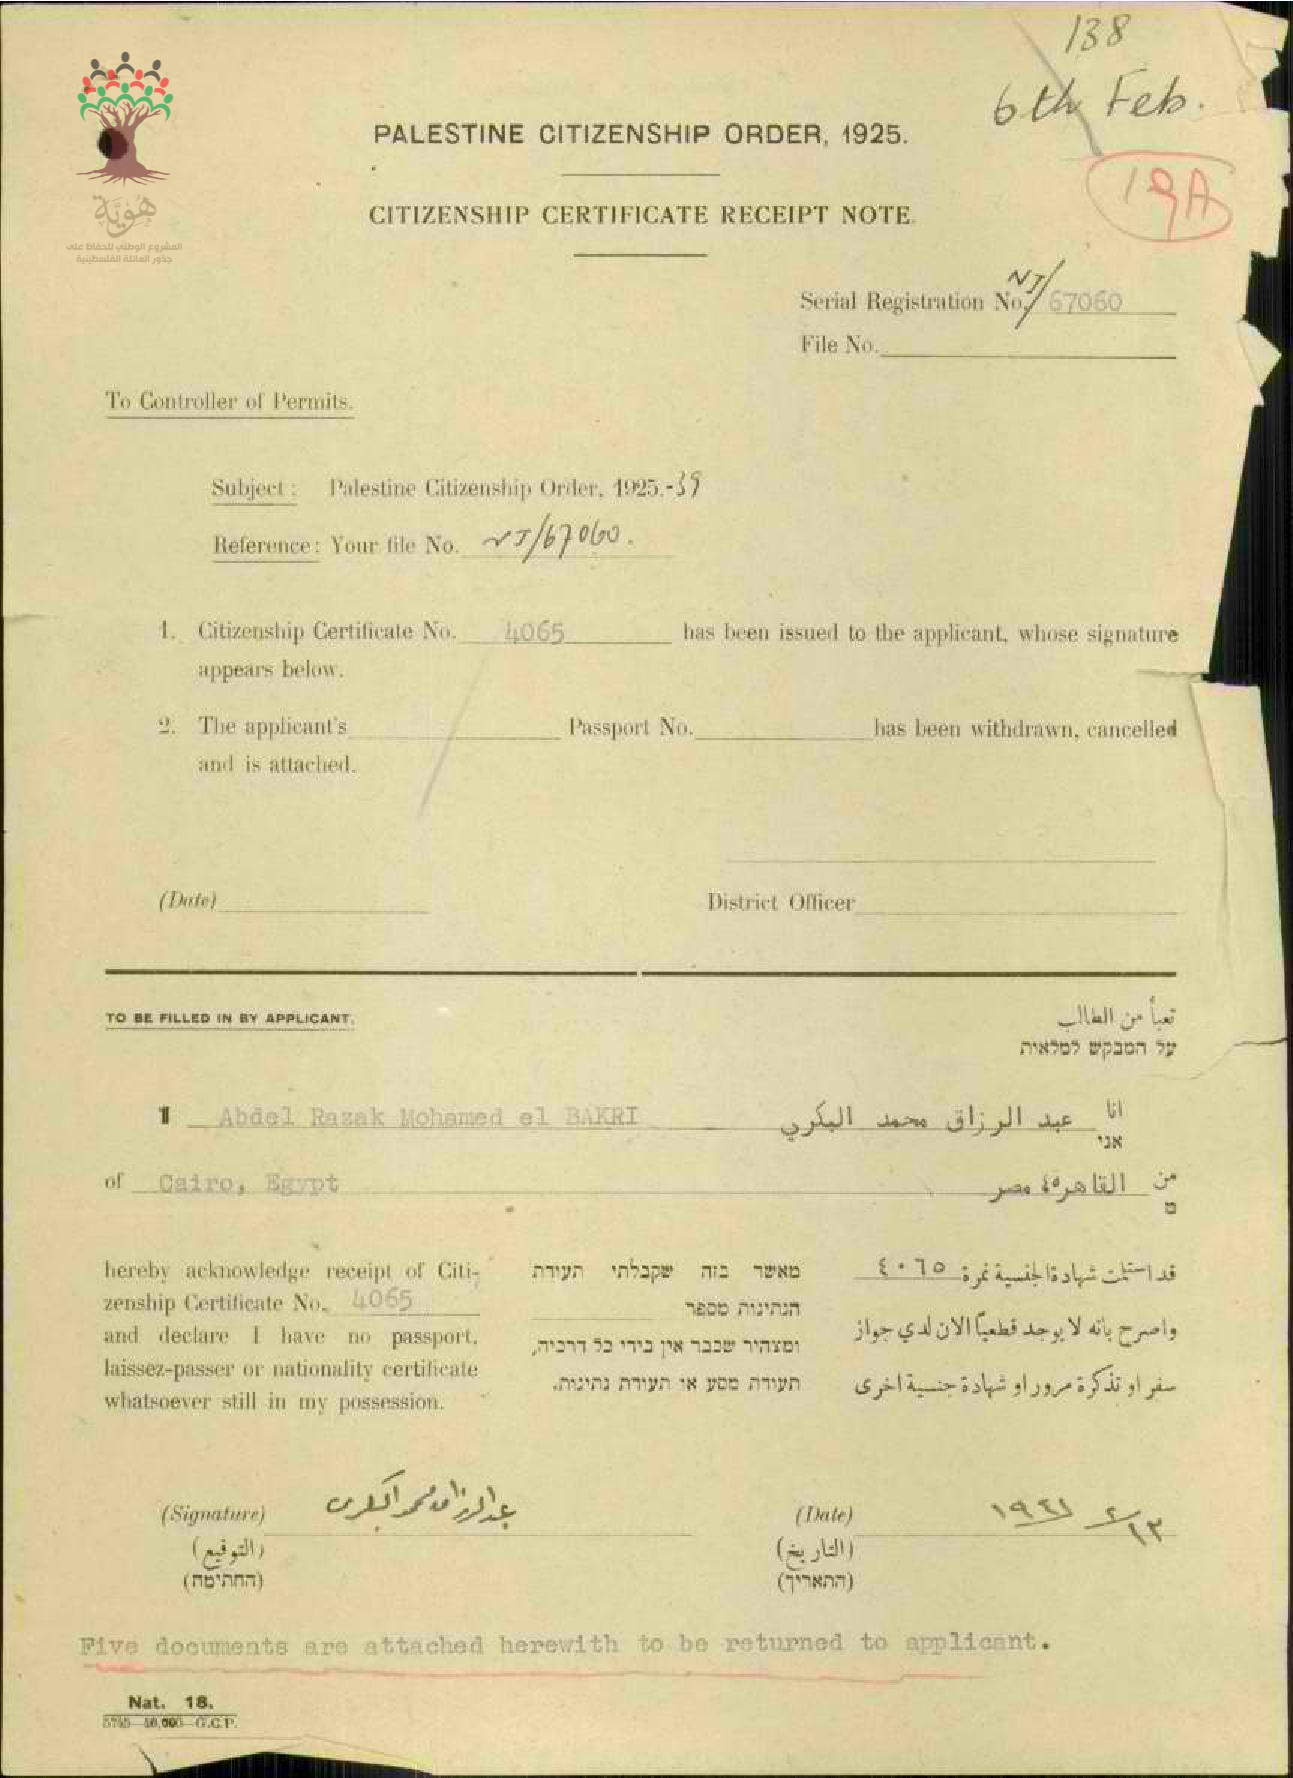 138
6th Feb.
19A
هُويَّة
المشروع الوطني للحفاظ على
جذور العائلة الفلسطينية
PALESTINE CITIZENSHIP ORDER, 1925.
CITIZENSHIP CERTIFICATE RECEIPT NOTE.
Serial Registration No. NJ/ 67060
File No.
To Controller of Permits.
Subject: Palestine Citizenship Order, 1925.-39
Reference: Your file No. NJ/67060.
1. Citizenship Certificate No. 4065 has been issued to the applicant, whose signature
appears below.
2. The applicant's Passport No. has been withdrawn, cancelled
and is attached.
(Date) District Officer
TO BE FILLED IN BY APPLICANT.
تعبأ من الطالب
על המבקש למלאות
I Abdel Razak Mohamed el BAKRI
انا عبد الرزاق محمد البكري
אני
of Cairo, Egypt
من القاهرة مصر
מ
hereby acknowledge receipt of Citi-
zenship Certificate No. 4065
and declare I have no passport,
laissez-passer or nationality certificate
whatsoever still in my possession.
מאשר בזה שקבלתי תעודת
הנתינות מספר
ומצהיר שכבר אין בידי כל דרכיה,
תעודת מסע או תעודת נתינות.
قد استلمت شهادة الجنسية نمرة ٤٠٦٥
واصرح بانه لا يوجد قطعيًا الان لدي جواز
سفر او تذكرة مرور او شهادة جنسية اخرى
(Signature) عبد الرزاق محمد البكري
(التوقيع)
(החתימה)
(Date)
(التاريخ)
(התאריך)
Five documents are attached herewith to be returned to applicant.
Nat. 18.
G.C.P.